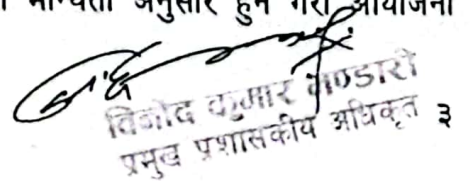 मान्यता अनुसार हुने गरी आयोजना
विनोद कुमार भण्डारी
प्रमुख प्रशासकीय अधिकृत ३